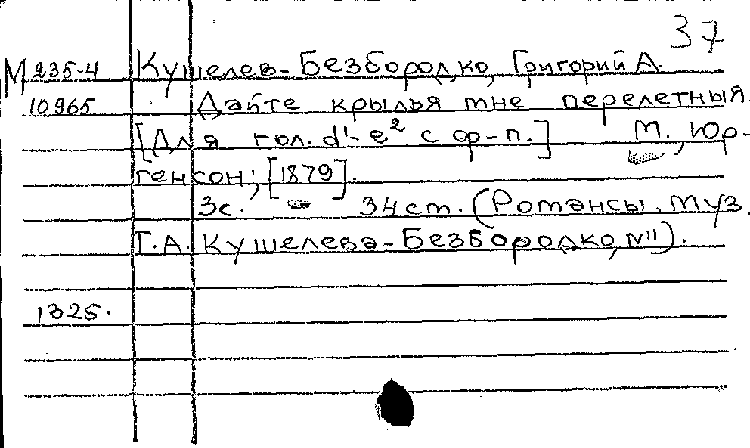 37
М 235-4 Кушелев-Безбородко, Григорий А.
10965 Дайте крылья мне перелетныя.
[Для гол. d¹-e² с ф-п.] М., Юр-
генсон, [1879].
3с. 34 ст. (Романсы. Муз.
Г.А. Кушелева-Безбородко, №11).
1325.